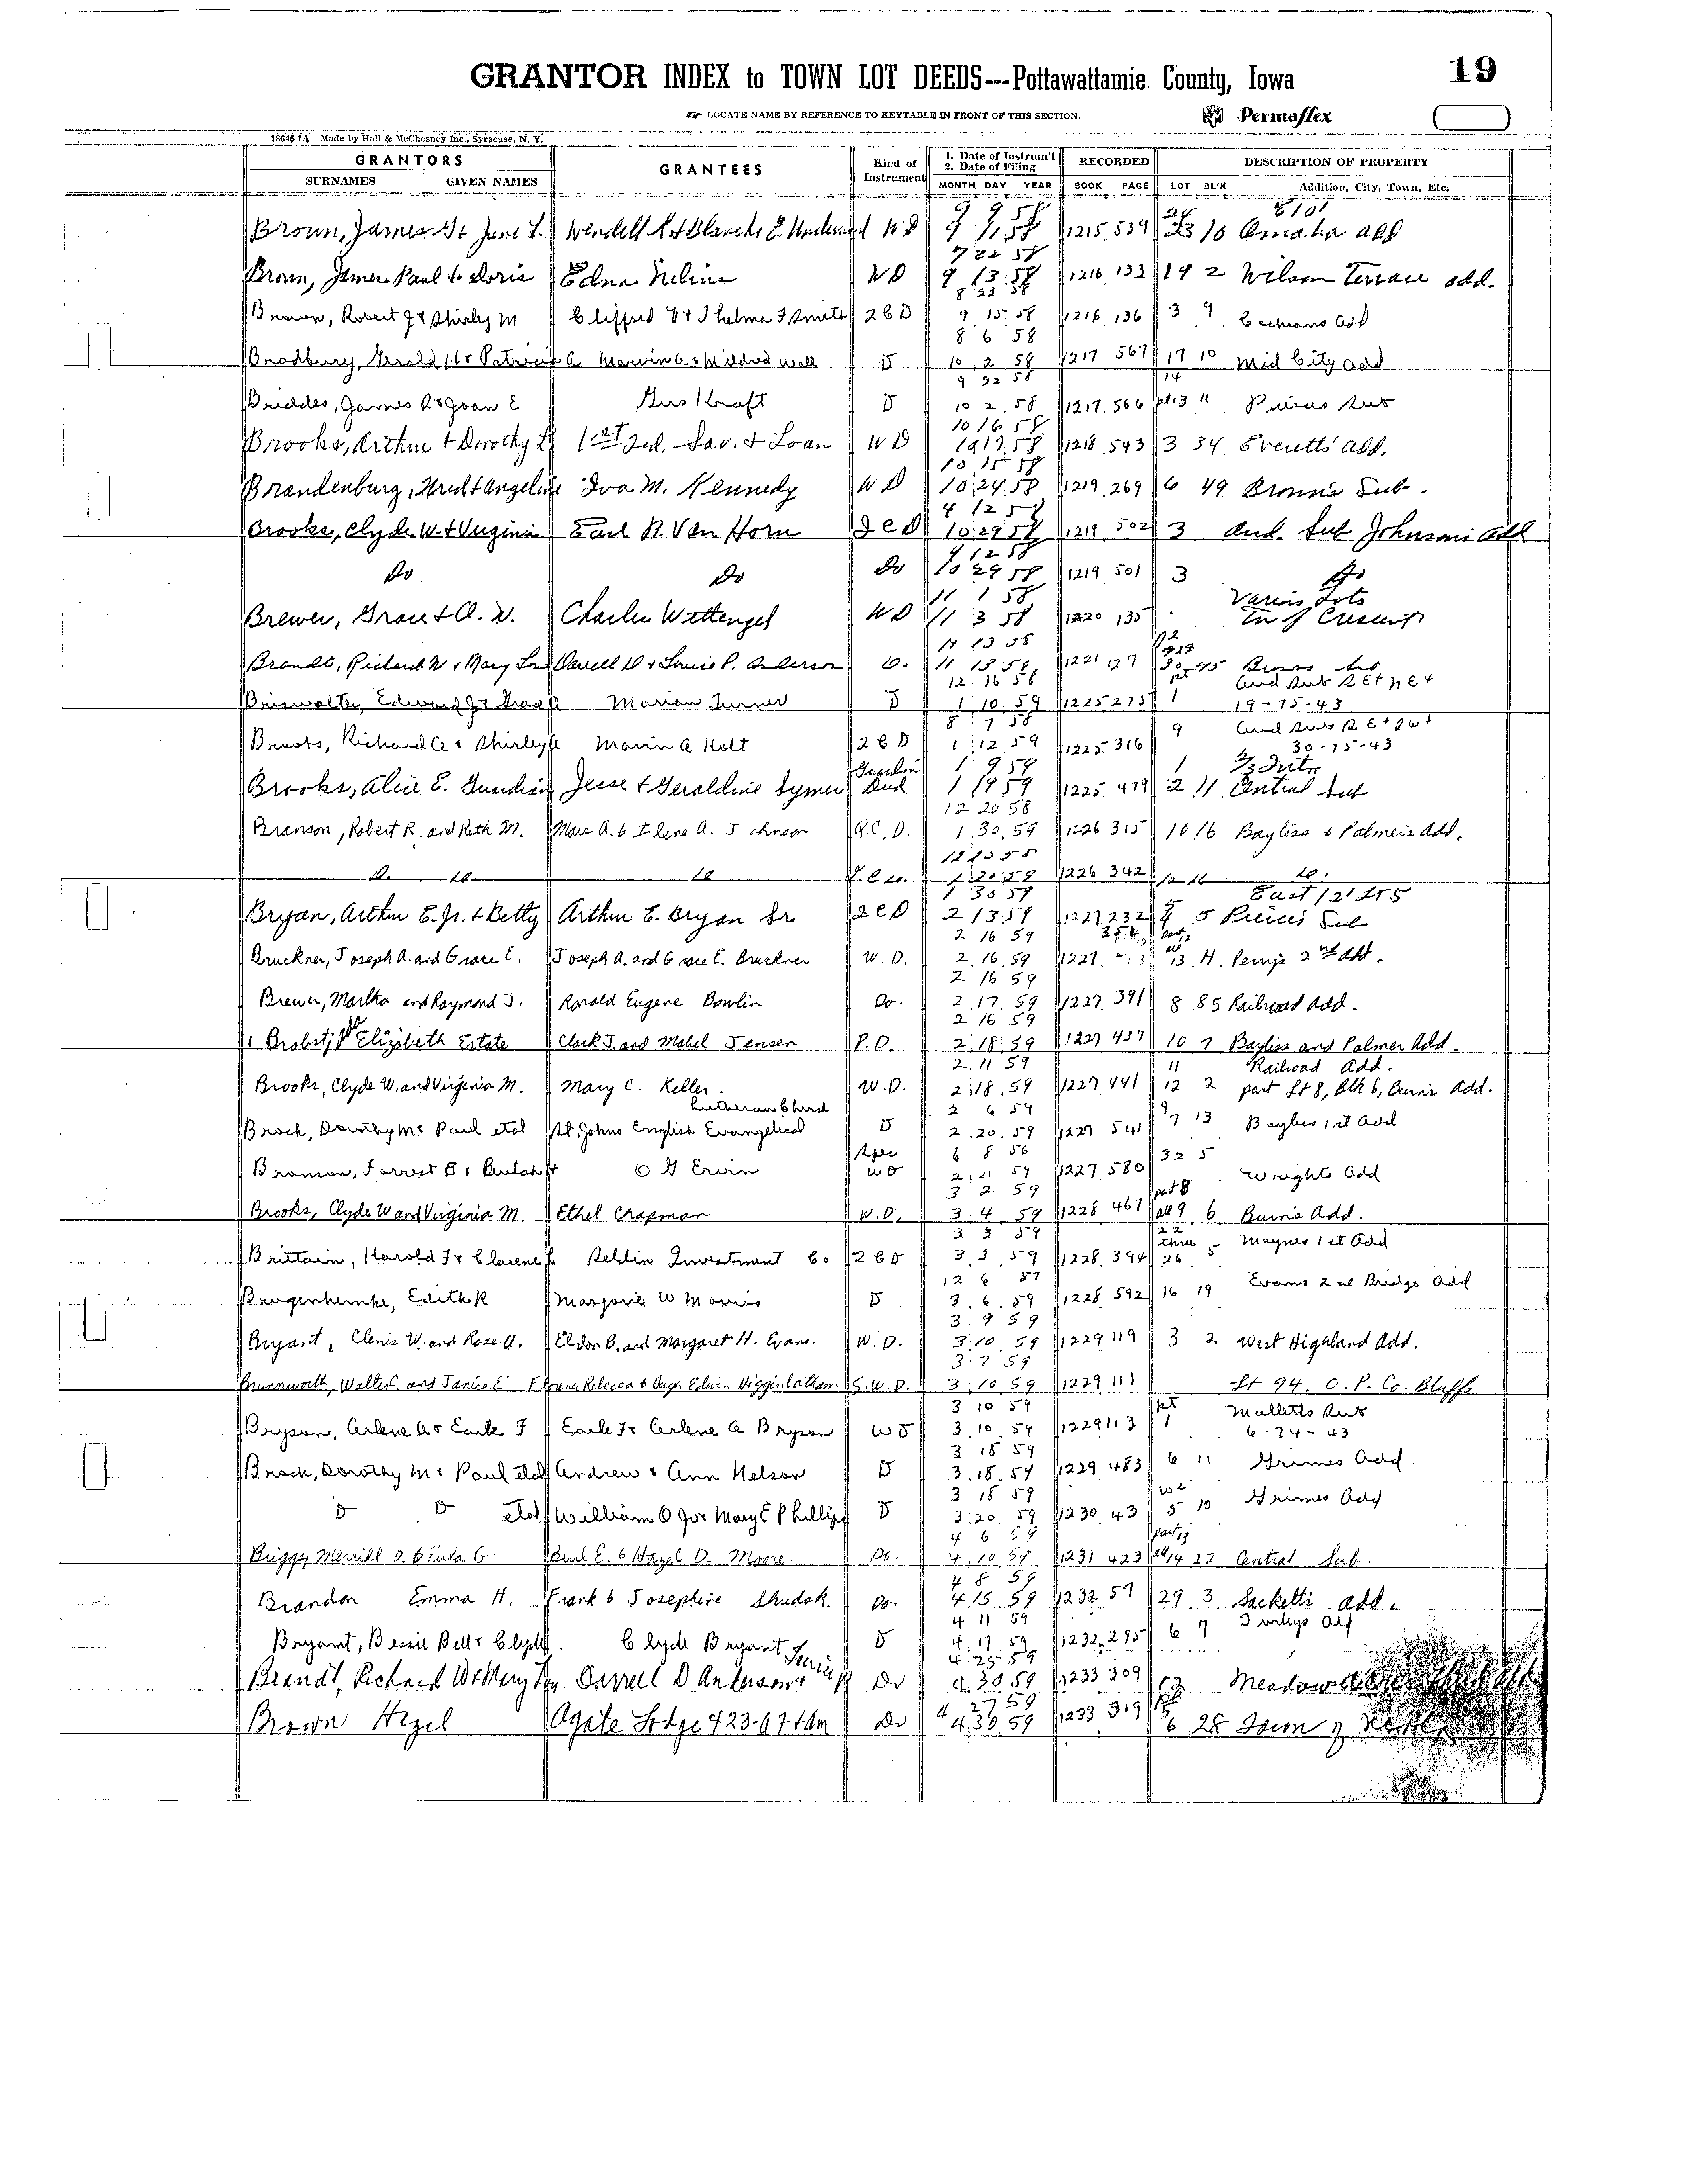 19
GRANTOR INDEX to TOWN LOT DEEDS---Pottawattamie County, Iowa
LOCATE NAME BY REFERENCE TO KEYTABLE IN FRONT OF THIS SECTION.
Permaflex
18646-1A Made by Hall & McChesney Inc., Syracuse, N. Y.
GRANTORS GRANTEES Kind of Instrument 1. Date of Instrum't 2. Date of Filing RECORDED DESCRIPTION OF PROPERTY
SURNAMES GIVEN NAMES MONTH DAY YEAR BOOK PAGE LOT BL'K Addition, City, Town, Etc.
9 9 58 24 E 101
Brown, James & June L. Wendell & Blanche E. WD 9 9 58 1215 539 23 10 Omaha add
7 22 58
Brown, James Paul & Doris Edna WD 9 13 58 1216 132 19 2 Wilson Terrace add.
8 22 58
Brown, Robert J & Shirley M Clifford V & Thelma F Smith 2CD 9 15 58 1216 136 3 9 Cochrans add
8 6 58
Bradbury, Gerald & Patricia A Marvin A & Mildred D 10 2 58 1217 567 17 10 Mid City add
9 22 58 14
James R & Joan E Gus Kraft D 10 2 58 1217 566 pt 13 11 Pierces Sub
10 16 58
Brooks, Arthur & Dorothy 1st Fed. Sav. & Loan WD 10 17 58 1218 543 3 34 Everetts add.
10 15 58
Brandenburg, & Angeline Iva M. Kennedy WD 10 24 58 1219 269 6 49 Brown's Sub.
4 12 58
Brooks, Clyde W. & Virginia Earl R. Van Horn QCD 10 29 58 1219 502 3 Aud. Sub Johnson's add
4 12 58
Do Do Do 10 29 58 1219 501 3 Do
11 1 58 Various Lots
Brewer, Grace & A. W. Charles Wettengel WD 11 3 58 1220 135 Tn of Crescent
11 13 58
Brandt, Richard W & Mary Lou Darrell D & Louise P. Anderson D. 11 13 58 1221 127 30 45 Burns
12 16 58 pt Aud Sub
Briswalter, Edward J & Marian Turner D 1 10 59 1225 275 1 19-75-43
8 7 58 Aud Sub
Richard A & Shirley Marvin A Holt 2CD 1 12 59 1225 316 9 30-75-43
Guardian 1 9 59 1 2/3 Intr
Brooks, Alice E. Guardian Jesse & Geraldine Deed 1 19 59 1225 479 2 11 Central Sub
12 20 58
Branson, Robert R. and Ruth M. Marc A. & Ilene A. Johnson Q.C.D. 1 30 59 1226 315 10 16 Bayliss & Palmers Add.
1226 342 10 16
1 30 59 East 12 1/2 5
Bryan, Arthur E. Jr. & Betty Arthur E. Bryan Sr QCD 2 13 59 1227 232 5 Pierce's Sub
2 16 59
Bruckner, Joseph A. and Grace E. Joseph A. and Grace E. Bruckner W.D. 2 16 59 1227 13 H. Perry's 2nd Add.
2 16 59
Brewer, Martha and Raymond J. Ronald Eugene Bowlin Do. 2 17 59 1227 391 8 85 Railroad Add.
2 16 59
Probst, Elizabeth Estate Clark J. and Mabel Jensen P.D. 2 18 59 1227 437 10 7 Bayliss and Palmer Add.
2 11 59 11 Railroad Add.
Brooks, Clyde W. and Virginia M. Mary C. Keller W.D. 2 18 59 1227 441 12 2 part Lt 8, Blk 6, Burn's Add.
Lutheran Church 2 6 59 9
Dorothy M & Paul etal St. Johns English Evangelical D 2 20 59 1227 541 7 13 Bayliss 1st Add
Spec 6 8 56 32 5
Branson, Forrest & Beulah C G Ervin WD 2 21 59 1227 580 Wrights Add
3 2 59 part 8
Brooks, Clyde W and Virginia M. Ethel Chapman W.D. 3 4 59 1228 467 all 9 6 Burn's Add.
3 3 59 22 thru Maynes 1st Add
Brittain, Harold F & Clarene Seldin Investment Co 2CD 3 3 59 1228 394 26 5
12 6 57
Edith R Marjorie W Morris D 3 6 59 1228 592 16 19 Evans 2nd Bridge Add
3 9 59
Bryant, Clenis W. and Rose A. Eldon B. and Margaret H. Evans. W.D. 3 10 59 1229 119 3 2 West Highland Add.
3 7 59
Brunnworth, Walter C. and Janice E Rebecca & Edwin Higginbotham S.W.D. 3 10 59 1229 111 Lt 94, O.P. Co. Bluffs
3 10 59 pt Malletts Sub
Bryson, Arlene A & Earle F Earle F & Arlene A Bryson WD 3 10 59 1229 113 1 6-74-43
3 18 59
Dorothy M & Paul etal Andrew & Ann Nelson D 3 18 59 1229 483 6 11 Grimes Add
3 18 59 W 2
D D etal William O Jr & Mary E Phillips D 3 20 59 1230 43 5 10 Grimes Add
4 6 59 part 13
Briggs Merrill D. & Eula G. Earl E. & Hazel D. Moore Do. 4 10 59 1231 423 all 14 22 Central Sub.
4 8 59
Brandon Emma H. Frank & Josephine Shudak. Do. 4 15 59 1232 57 29 3 Sacketts add.
4 11 59
Bryant, Bessie Bell & Clyde Clyde Bryant D 4 17 59 1232 295 6 7 Turleys Add
4 25 59
Brandt, Richard W & Mary Lou Darrell D. Anderson & Do 4 30 59 1233 309
4 27 59
Brown Hazel Agate Lodge 423 Do 4 30 59 1233 319 6 28 Town of